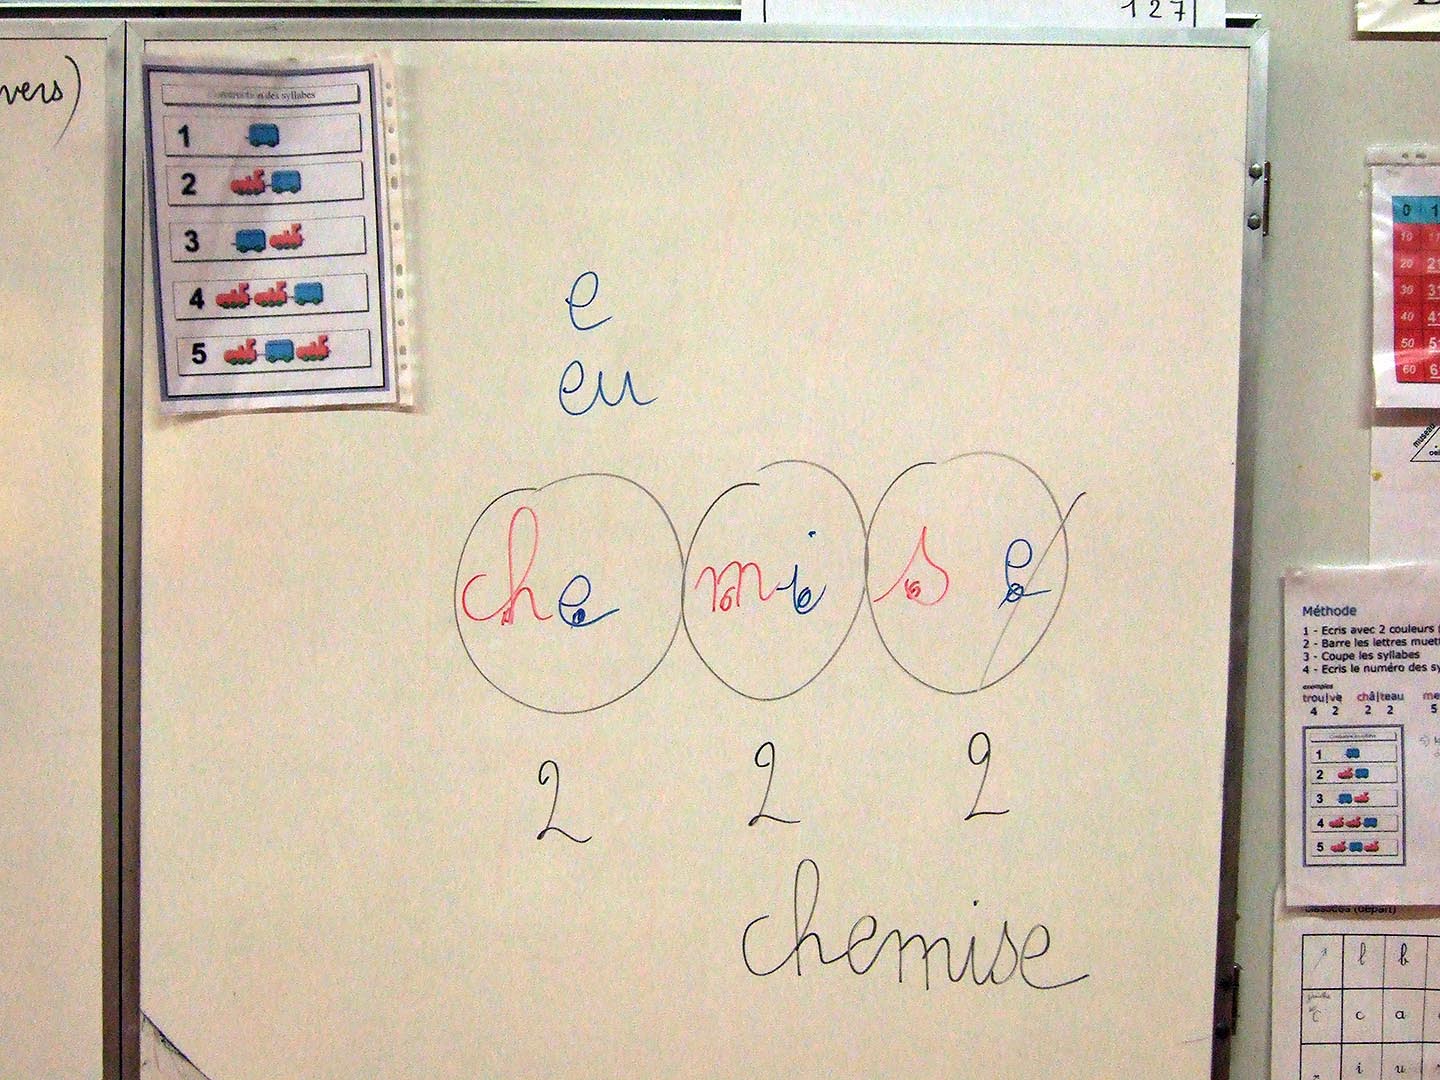 127
vers)
Construction des syllabes
1
2
3
4
5
e
eu
che mi se
2 2 2
chemise
0 1
10
20 2
30 3
40 4
50 5
60 6
museau
Méthode
1 - Ecris avec 2 couleurs
2 - Barre les lettres muett
3 - Coupe les syllabes
4 - Ecris le numéro des sy
exemples
trou|ve châ|teau me
4 2 2 2 5
1
2
3
4
5
(départ)
l b
c a
i u